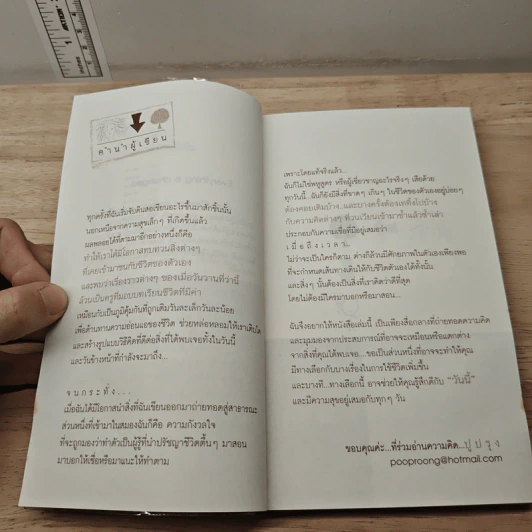 คำนำผู้เขียน
ทุกครั้งที่ฉันเริ่มจับดินสอเขียนอะไรขึ้นมาสักชิ้นนั้น
นอกเหนือจากความสุขเล็กๆ ที่เกิดขึ้นแล้ว
ผลพลอยได้ที่ตามมาอีกอย่างหนึ่งก็คือ
ทำให้เราได้มีโอกาสทบทวนสิ่งต่างๆ
ที่เคยเข้ามาชนกับชีวิตของตัวเอง
และพบว่าเรื่องราวต่างๆ ของเมื่อวันวานที่ว่านี้
ล้วนเป็นครูที่มอบบทเรียนชีวิตที่มีค่า
เหมือนกับเป็นภูมิคุ้มกันที่ถูกเติมวันละเล็กวันละน้อย
เพื่อต้านทานความอ่อนแอของชีวิต ช่วยหล่อหลอมให้เราเติบโต
และสร้างรูปแบบวิธีคิดที่ดีต่อสิ่งที่ได้พบเจอทั้งในวันนี้
และวันข้างหน้าที่กำลังจะมาถึง...
จนกระทั่ง...
เมื่อฉันได้มีโอกาสนำสิ่งที่ฉันเขียนออกมาถ่ายทอดสู่สาธารณะ
ส่วนหนึ่งที่เข้ามาในสมองฉันก็คือ ความกังวลใจ
ที่จะถูกมองว่าทำตัวเป็นผู้รู้ที่นำปรัชญาชีวิตตื้นๆ มาสอน
มาบอกให้เชื่อหรือมาแนะให้ทำตาม
เพราะโดยแท้จริงแล้ว...
ฉันก็ไม่ใช่พหูสูตร หรือผู้เชี่ยวชาญอะไรจริงๆ เสียด้วย
ทุกวันนี้...ฉันก็ยังมีสิ่งที่ขาดๆ เกินๆ ในชีวิตของตัวเองอยู่บ่อยๆ
ต้องคอยเติมบ้าง และบางครั้งต้องเททิ้งไปบ้าง
กับความคิดต่างๆ ที่วนเวียนเข้ามาซ้ำแล้วซ้ำเล่า
ประกอบกับความเชื่อที่มีอยู่เสมอว่า
เมื่อถึงเวลา..
ไม่ว่าจะเป็นใครก็ตาม ต่างก็ล้วนมีศักยภาพในตัวเองเพียงพอ
ที่จะกำหนดเส้นทางเดินให้กับชีวิตตัวเองได้ทั้งนั้น
และสิ่งๆ นั้นต้องเป็นสิ่งที่เราคิดว่าดีที่สุด
โดยไม่ต้องมีใครมาบอกหรือมาสอน...
ฉันจึงอยากให้หนังสือเล่มนี้ เป็นเพียงสื่อกลางที่ถ่ายทอดความคิด
และมุมมองจากประสบการณ์ที่อาจจะเหมือนหรือแตกต่าง
จากสิ่งที่คุณได้พบเจอ...ขอเป็นส่วนหนึ่งที่อาจจะทำให้คุณ
มีทางเลือกกับบางเรื่องในการใช้ชีวิตเพิ่มขึ้น
และบางที...ทางเลือกนี้ อาจช่วยให้คุณรู้สึกดีกับ "วันนี้"
และมีความสุขอยู่เสมอกับทุกๆ วัน
ขอบคุณค่ะ...ที่ร่วมอ่านความคิด...ปูปรุง
pooproong@hotmail.com